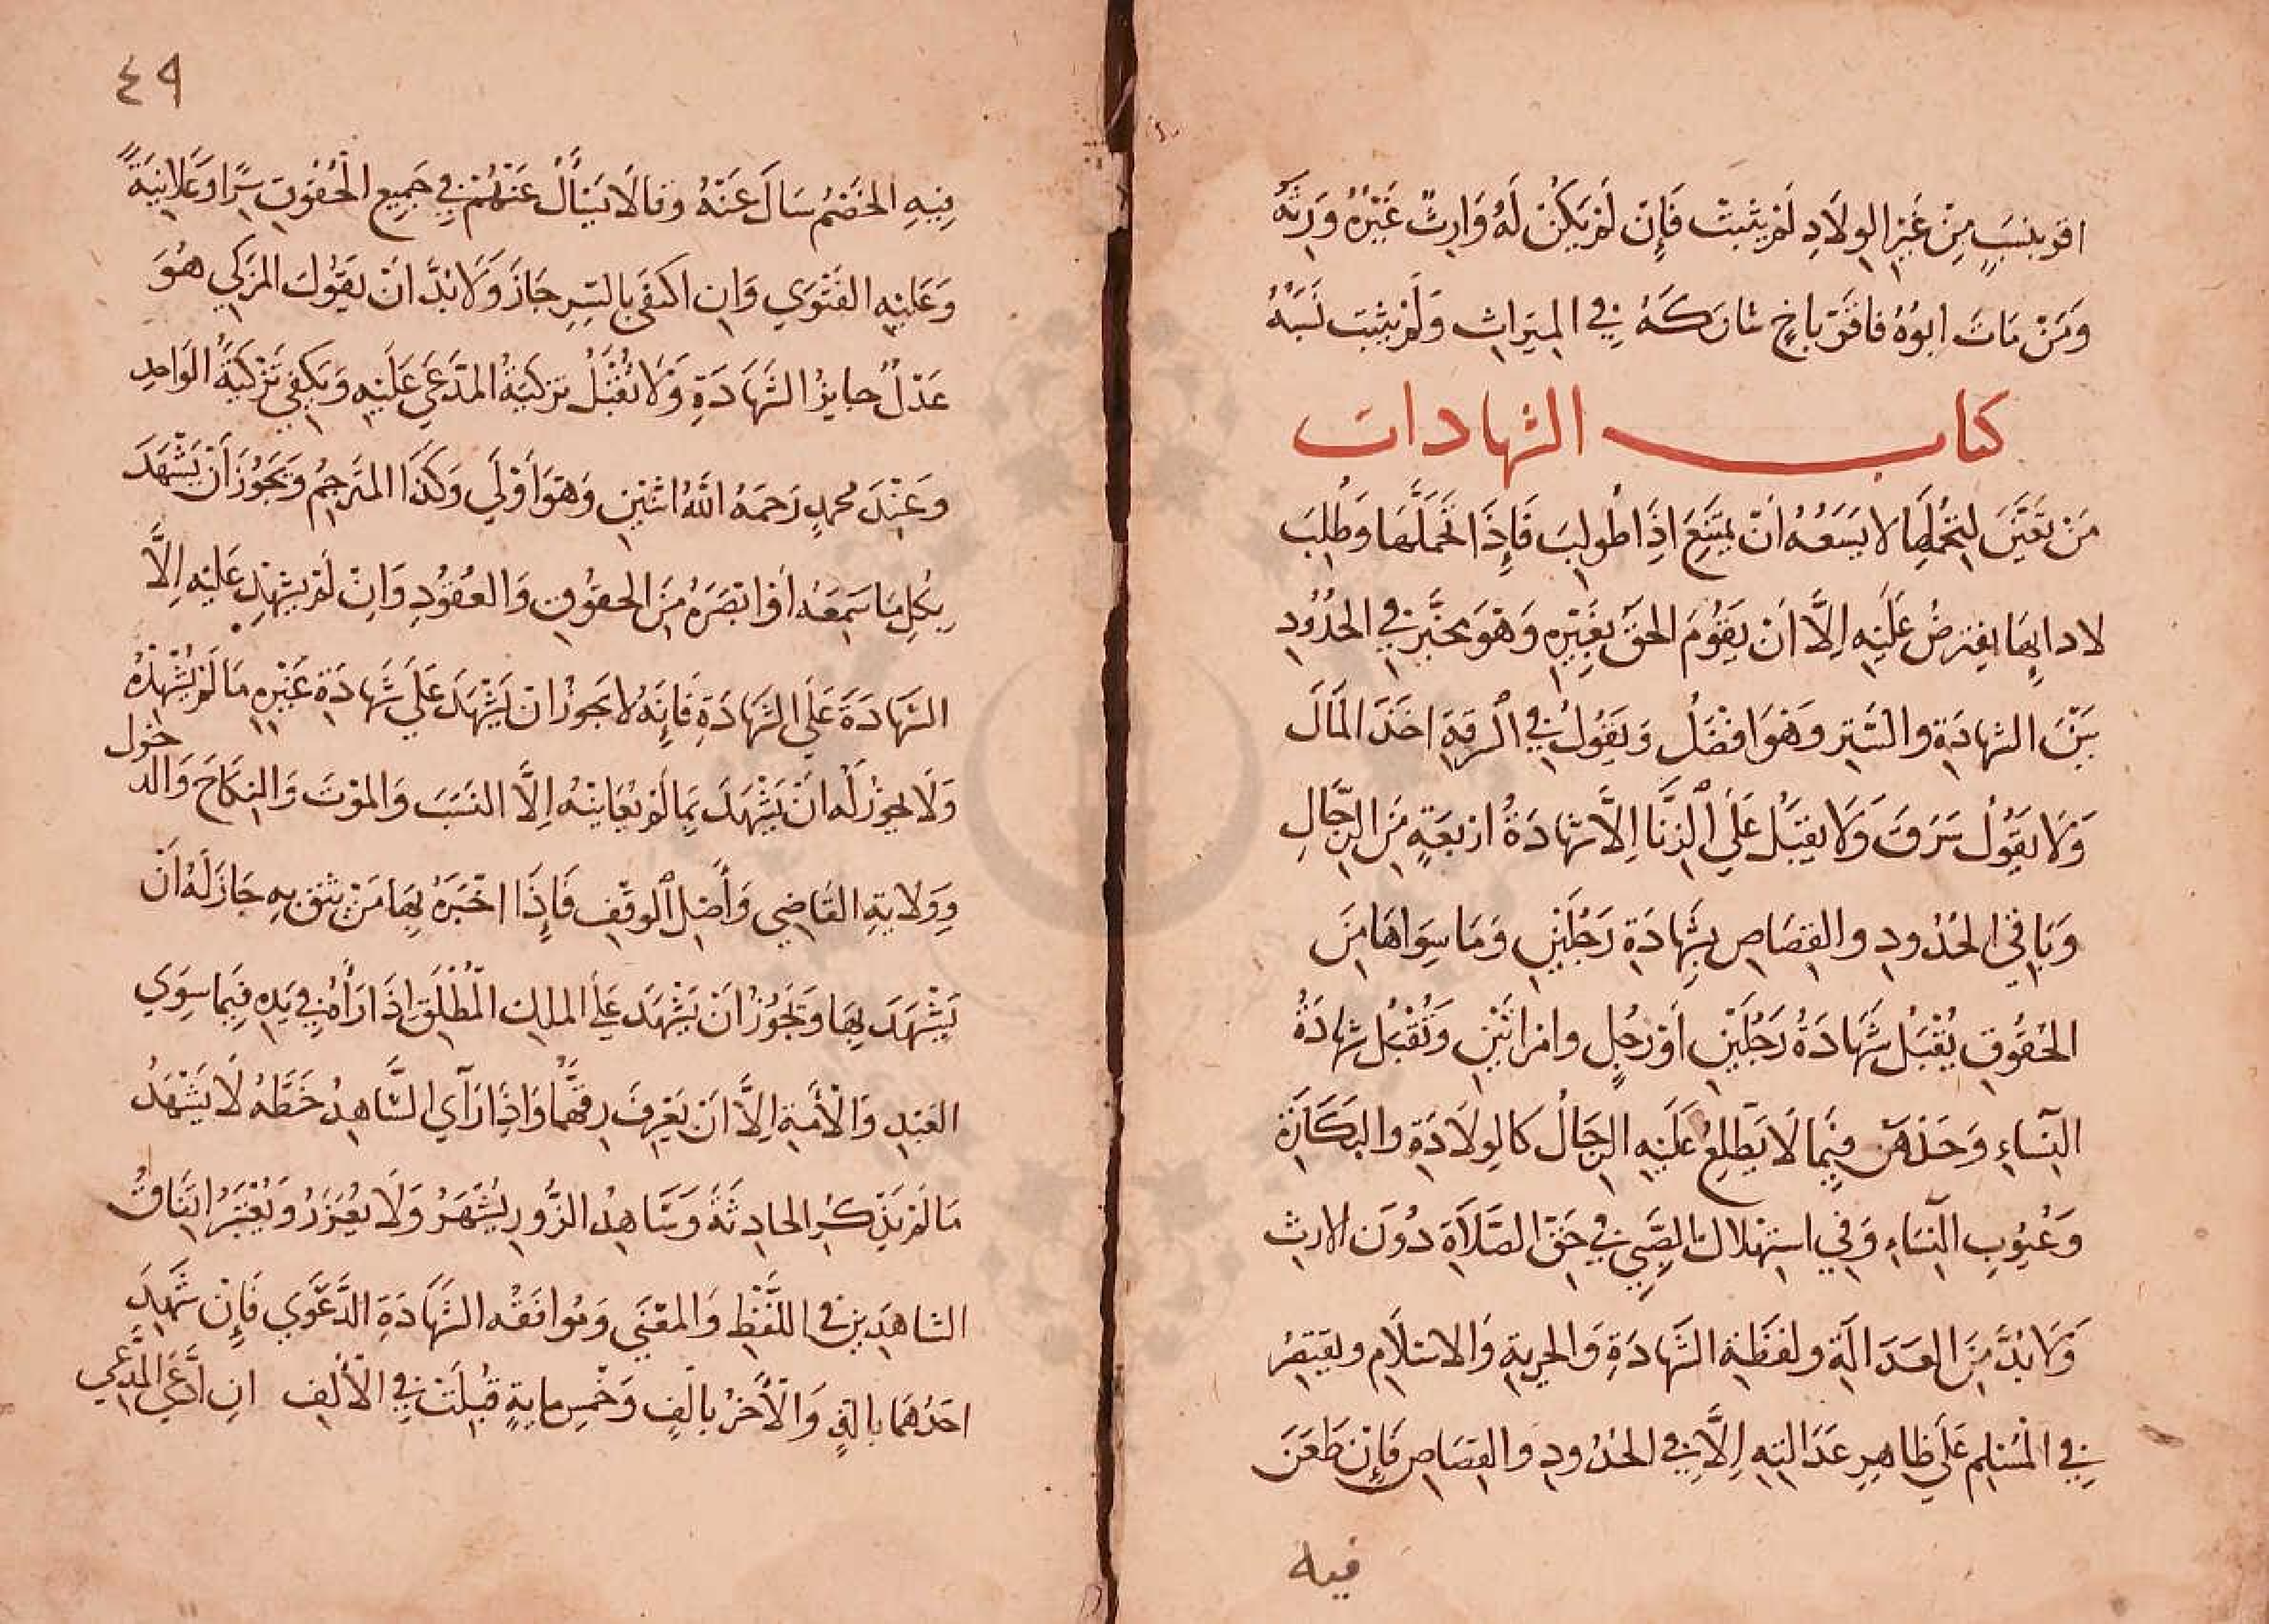 اقر بنسبٍ مِنْ غَيرِ الوِلَادِ لَمْ يَثبتْ فَإِنْ لَمْ يَكُنْ لَهُ وَارِثٌ غَيْرُهُ وَرِثَهُ
وَمَنْ مَاتَ ابوُهُ فاقَرّ باخٍ شارَكَهُ فِي الميرَاثِ وَلَمْ يثبت نَسَبُهُ
كتاب الشهادات
مَنْ تَعَيَّنَ لِتَحَمُّلِهَا لا يَسَعُهُ انْ يمتَنِعَ اذَا طُولِبَ فَإِذَا تَحَمَّلَهَا وَطُلِبَ
لادايِهَا يفترضُ عَلَيْهِ اِلَّا انْ يَقُومَ الحَقُ بِغَيْرِهِ وَهُوَ مخَيَّرٌ فِي الحُدُودِ
بَيْنَ الشهادَةِ والسَّترِ وَهُوَ افضَلُ وَيَقُولُ فِي السرقَةِ اخَذَ المَالَ
وَلَا يَقُولُ سَرَقَ وَلَا يقبَلُ عَلَى الزِنَا اِلَّا شهَادَةُ ارْبعَةٍ مِنَ الرِّجَالِ
وَبَاقِي الحُدُودِ والقِصَاصِ بِشَهَادَةِ رَجُلَيْنِ وَمَا سِوَاهَا مِنَ
الحُقُوقِ يُقْبَلُ شَهَادَةُ رَجُلَيْنِ أوْ رَجُلٍ وامراتَيْنِ وَتُقْبَلُ شهادَةُ
النِّسَاءِ وَحْدَهُنّ فِيمَا لَا يَطَّلِعُ عَلَيْهِ الرِجَالُ كالوِلَادَةِ والبَكَارَةِ
وَعُيُوبِ النِّسَاءِ وَفي استِهْلالِ الصَّبِي في حَقّ الصَّلَاةِ دُونَ الارثِ
وَلَا بُدَّ مِنَ العَدَالَةِ ولفظَةِ الشَّهَادَةِ وَالحريةِ وَالاسْلَامِ ويقتصرُ
فِي الْمُسْلِمِ عَلَى ظاهِرِ عَدَالتِهِ اِلَّا فِي الحُدُودِ والقِصَاصِ فَإِنْ طَعَنَ
فيه
٤٩
فِيهِ الخَصْمُ سَالَ عَنْهُ وقالَا يَسْأَلُ عَنْهُمْ فِي جَمِيعِ الْحُقُوقِ سِرًّا وَعَلَانِيَةً
وَعَلَيْهِ الفَتْوَي وَانِ اكتفَى بالسِّرِ جَازَ وَلَا بُدَّ انْ يَقُولَ المزكِي هُوَ
عَدْلٌ جايزُ الشَّهَادَةِ وَلَا تُقْبَلُ تزكيَةُ المدَّعَي عَلَيْهِ وَيَكفِي تَزْكيَةُ الوَاحِدِ
وعَنْدَ محمدٍ رَحمَهُ اللّهُ اثنَيْنِ وَهُوَ أوْلَي وَكَذَا المترجِمُ وَيَجُوزُ أَنْ يَشْهَدَ
بِكُلِ مَا سَمِعَهُ أوْ ابْصَرَهُ مِنَ الحقُوقِ وَالعُقُودِ وَاِنْ لَمْ يشهَدْ عَلَيْهِ اِلَّا
الشَّهَادَةَ عَلَي الشَّهَادَةِ فَإِنَّهُ لا يَجوزُ انْ يَشْهَدَ عَلَي شَهادَةِ غَيْرِهِ مَا لَمْ يُشْهِدْهُ
وَلَا يجوزُ لَه انْ يَشْهَدَ بِمَا لَمْ يُعَايِنْهُ اِلَّا النَسَبَ وَالموْتَ وَالنِكَاحَ وَالد
خول
وَوِلايةِ القَاضِي وَأَصْلِ الوقفِ فَإِذَا اخْبَرَهُ بِهَا مَنْ يثق بِهِ جَازَ لَهُ أنْ
يَشْهَدَ بِهَا وَيَجُوزُ انْ يَشْهَدَ عَلَي الملكِ الْمُطْلَقِ اِذَا رَأهُ فِي يَدِهِ فِيمَا سِوَي
العَبْدِ وَالْأَمَةِ اِلَّا انْ يَعْرِفَ رِقَّهُمَا وَاذَا رَآي الشَّاهِدُ خَطَّهُ لَا يَشْهَدُ
مَا لَمْ يَذكُرِ الحادِثَةَ وَشَاهِدُ الزُّورِ يُشْهَرُ وَلَا يُعَزَرُ وَيُعْتَبَرُ اتِّفَاقُ
الشاهِدَينِ في اللَّفْظِ وَالمَعْنَي وَمُوافَقَه الشَّهَادَةِ الدَّعْوَي فَإِنْ شَهِدَ
احَدُهُمَا بالفٍ وَالْأَخَرُ بالْفٍ وَخَمْسِ مايةٍ قبُلَتْ فِي الْأَلِفِ انِ ادَّعَي المدَّعِي